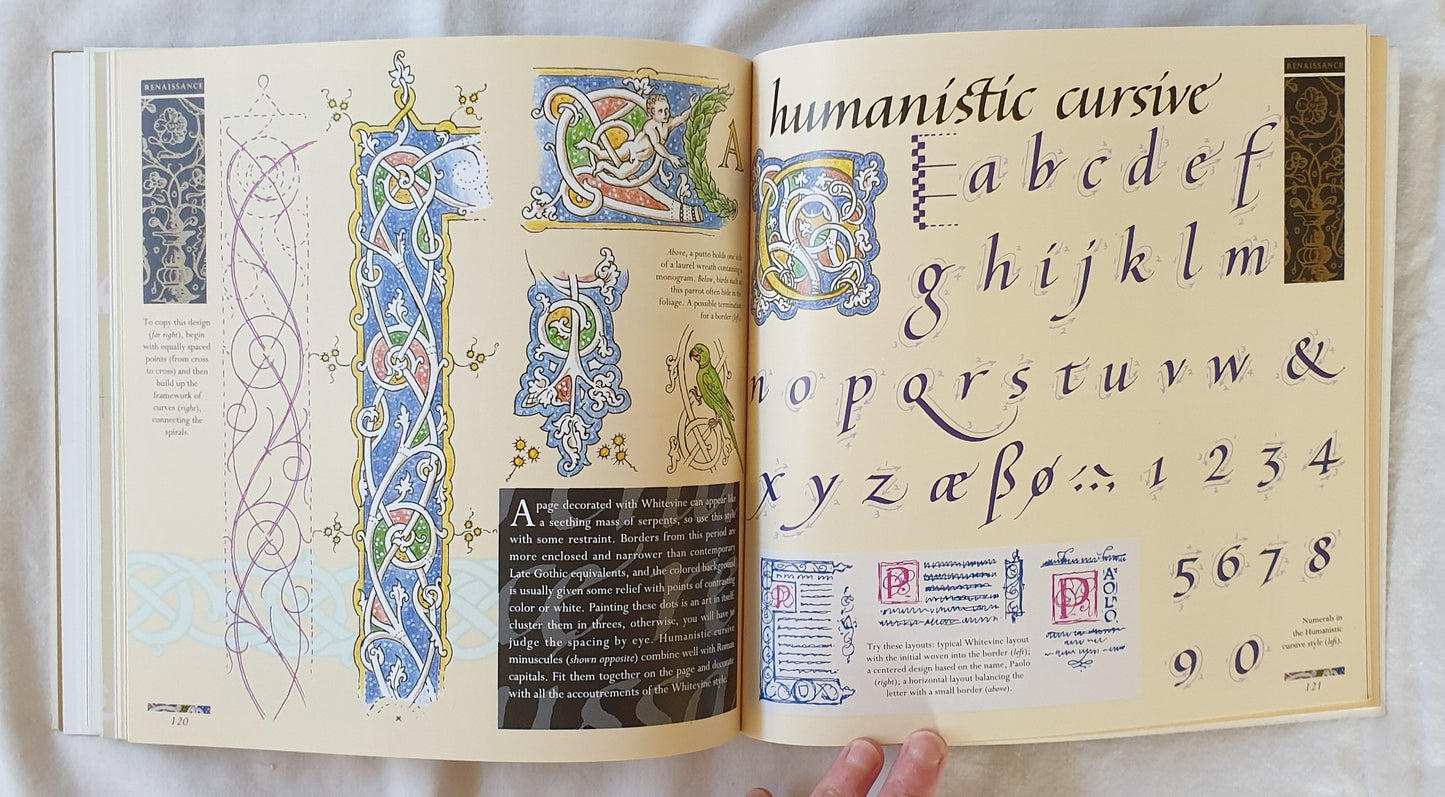 RENAISSANCE
To copy this design
(far right), begin
with equally spaced
points (from cross
to cross) and then
build up the
framework of
curves (right),
connecting the
spirals.
120
A
Above, a putto holds one side
of a laurel wreath containing a
monogram. Below, birds such as
this parrot often hide in the
foliage. A possible termination
for a border (left).
A page decorated with Whitevine can appear like
a seething mass of serpents, so use this style
with some restraint. Borders from this period are
more enclosed and narrower than contemporary
Late Gothic equivalents, and the colored background
is usually given some relief with points of contrasting
color or white. Painting these dots is an art in itself:
cluster them in threes, otherwise, you will have to
judge the spacing by eye. Humanistic cursive
minuscules (shown opposite) combine well with Roman
capitals. Fit them together on the page and decorate
with all the accoutrements of the Whitevine style.
humanistic cursive
RENAISSANCE
a b c d e f
g h i j k l m
n o p q r s t u v w &
x y z æ ß ø 1 2 3 4
5 6 7 8
9 0
P
P
P
AOLO
Try these layouts: typical Whitevine layout
with the initial woven into the border (left);
a centered design based on the name, Paolo
(right); a horizontal layout balancing the
letter with a small border (above).
Numerals in
the Humanistic
cursive style (left).
121